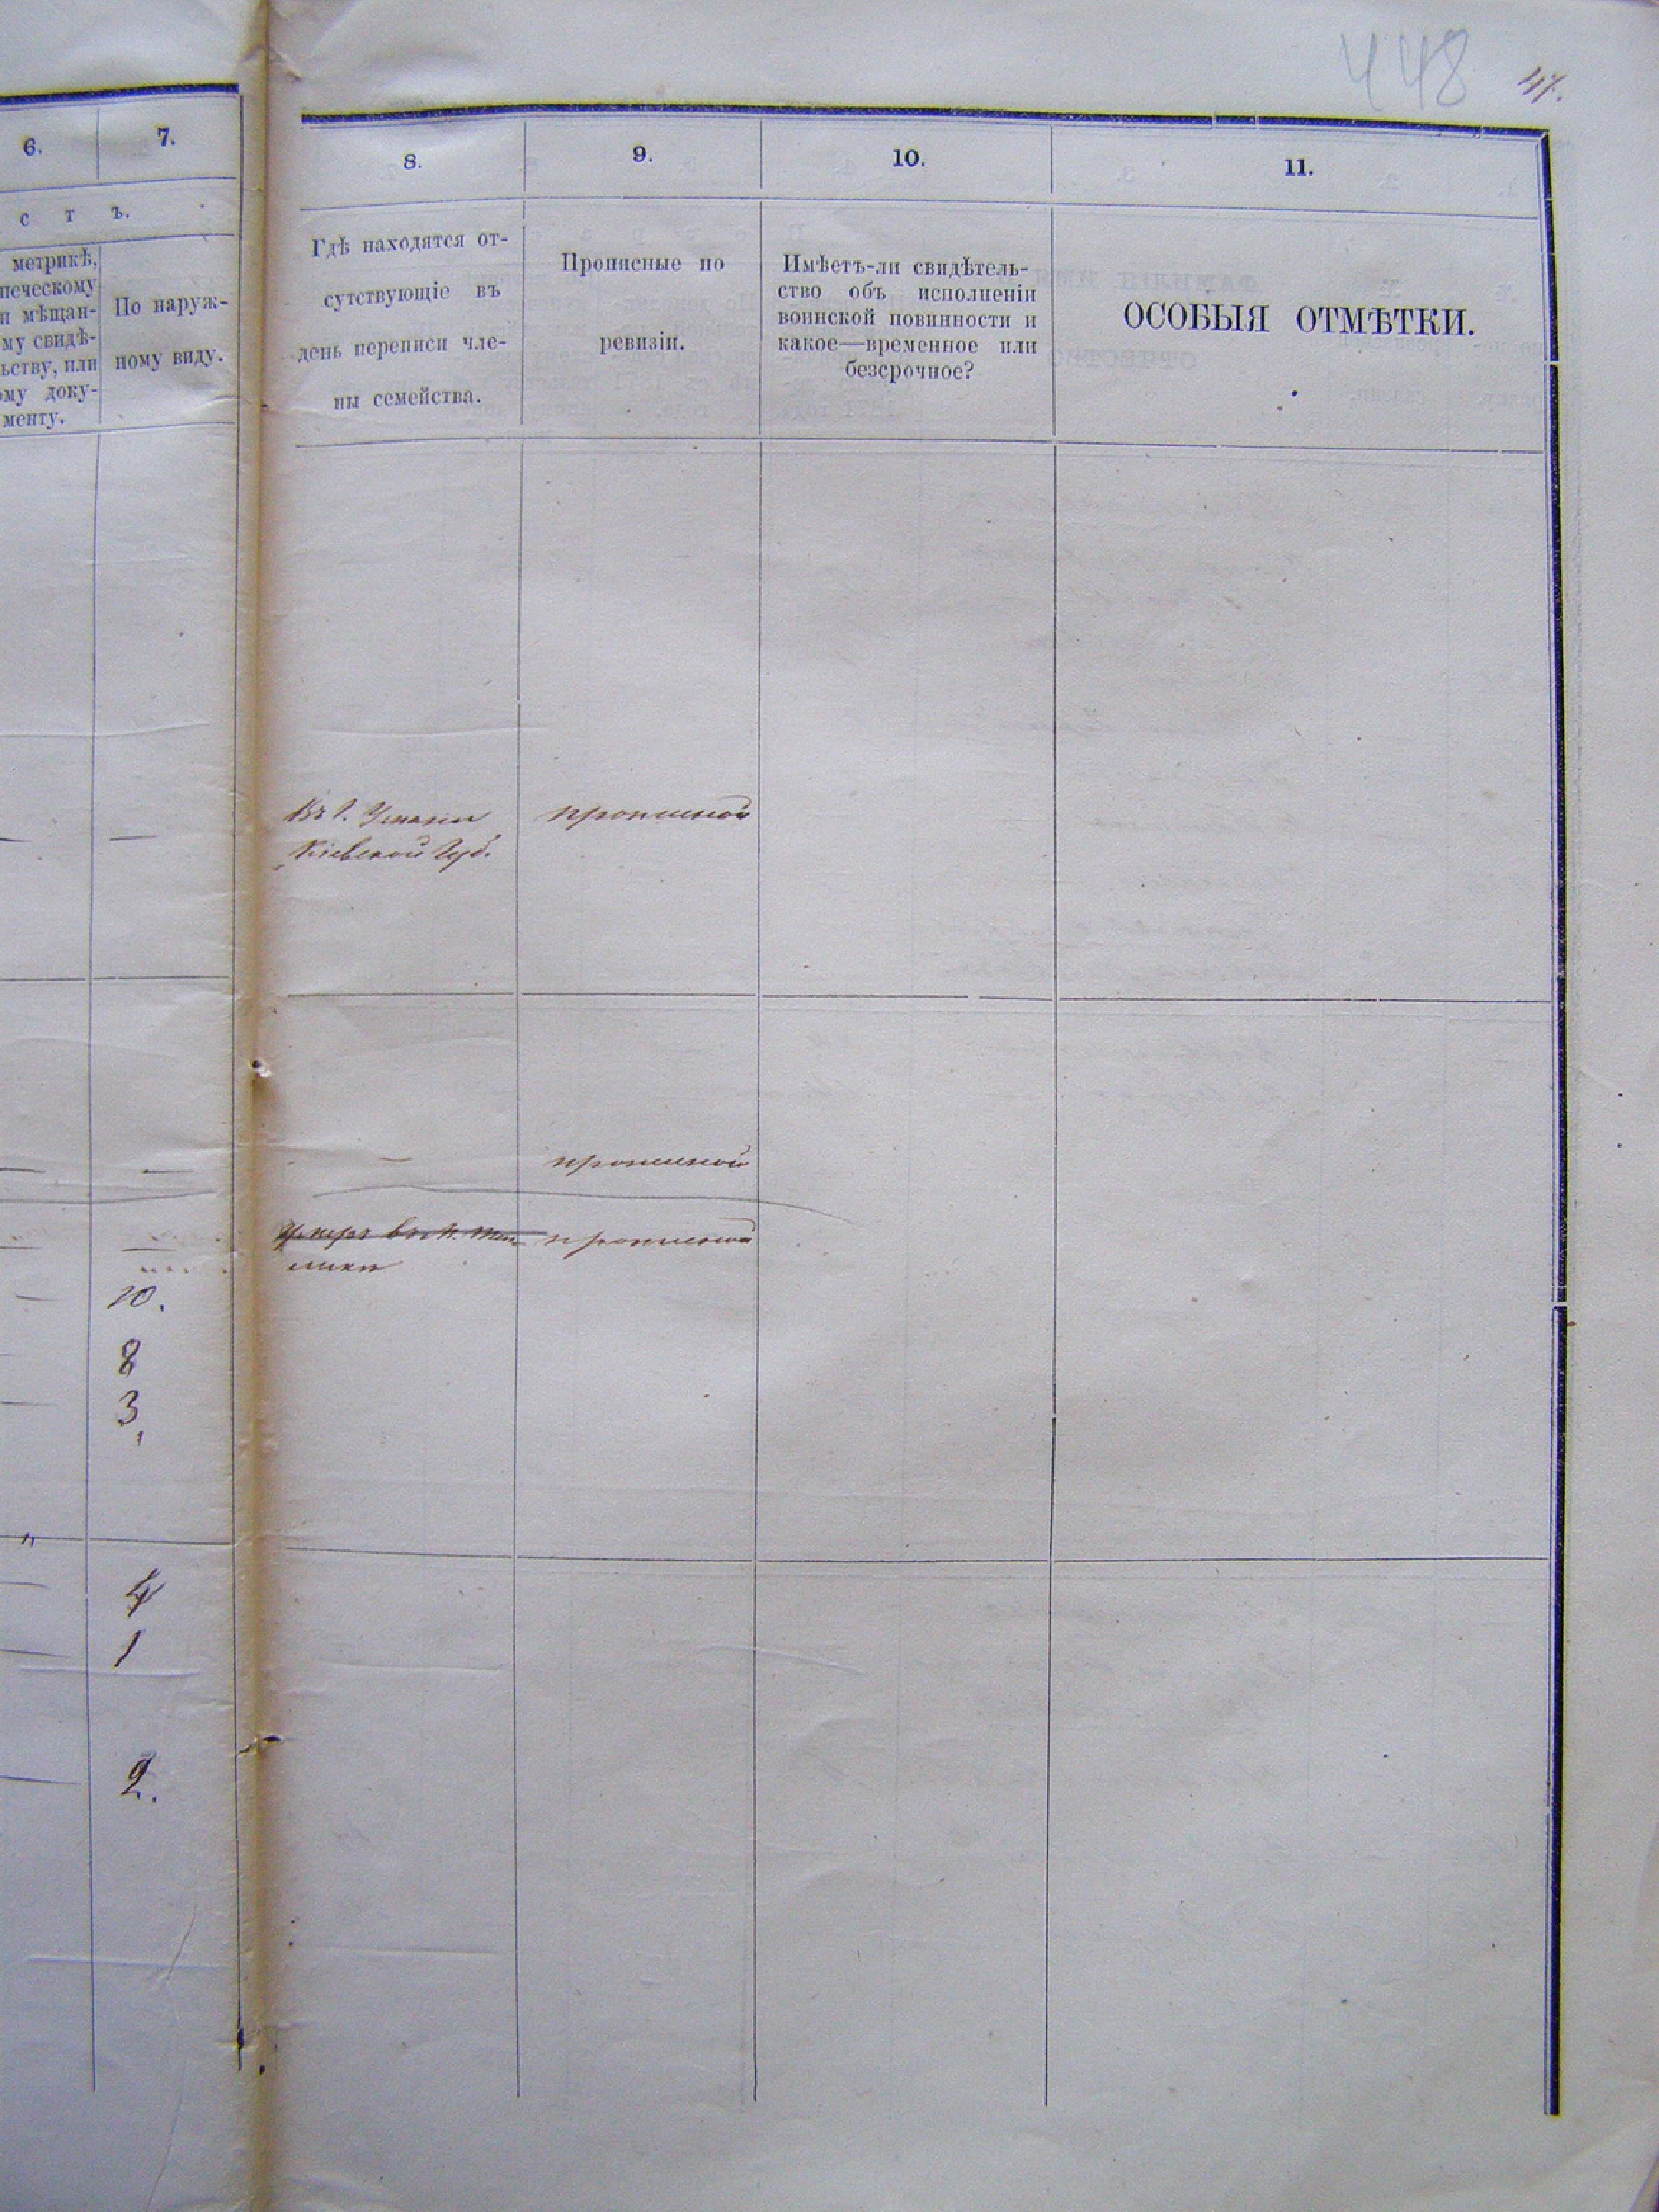 448 47.
6. 7.
с т ъ.
метрикѣ,
печескому
и мѣщан-
му свидѣ-
ьству, или
ому доку-
менту.
По наруж-
ному виду.
8. 9. 10. 11.
Гдѣ находятся от-
сутствующіе въ
день переписи чле-
ны семейства.
Прописные по
ревизіи.
Имѣетъ-ли свидѣтель-
ство объ исполненіи
воинской повинности и
какое—временное или
безсрочное?
ОСОБЫЯ ОТМѢТКИ.
— — Въ г. Умани прописной
Кіевской Губ.
— — — прописной
Умеръ въ м. прописной
— 10.
8
— 3
"
— 4
— 1
— 2.